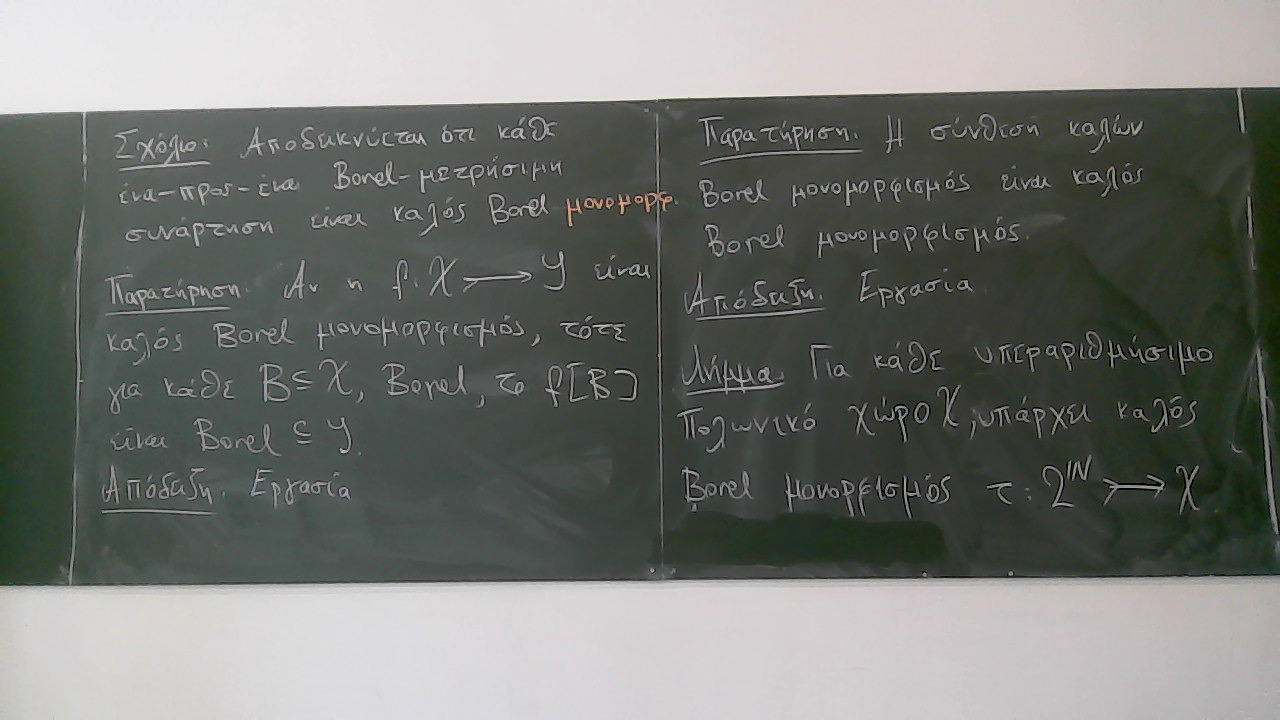 Σχόλιο: Αποδεικνύεται ότι κάθε
ένα-προς-ένα Borel-μετρήσιμη
συνάρτηση είναι καλός Borel μονομορφ.
Παρατήρηση. Αν η f: X ↣ Y είναι
καλός Borel μονομορφισμός, τότε
για κάθε B ⊆ X, Borel, το f[B]
είναι Borel ⊆ Y.
Απόδειξη. Εργασία
Παρατήρηση. Η σύνθεση καλών
Borel μονομορφισμός είναι καλός
Borel μονομορφισμός.
Απόδειξη. Εργασία
Λήμμα. Για κάθε υπεραριθμήσιμο
Πολωνικό χώρο X, υπάρχει καλός
Borel μονορφισμός τ: 2^ℕ ↣ X